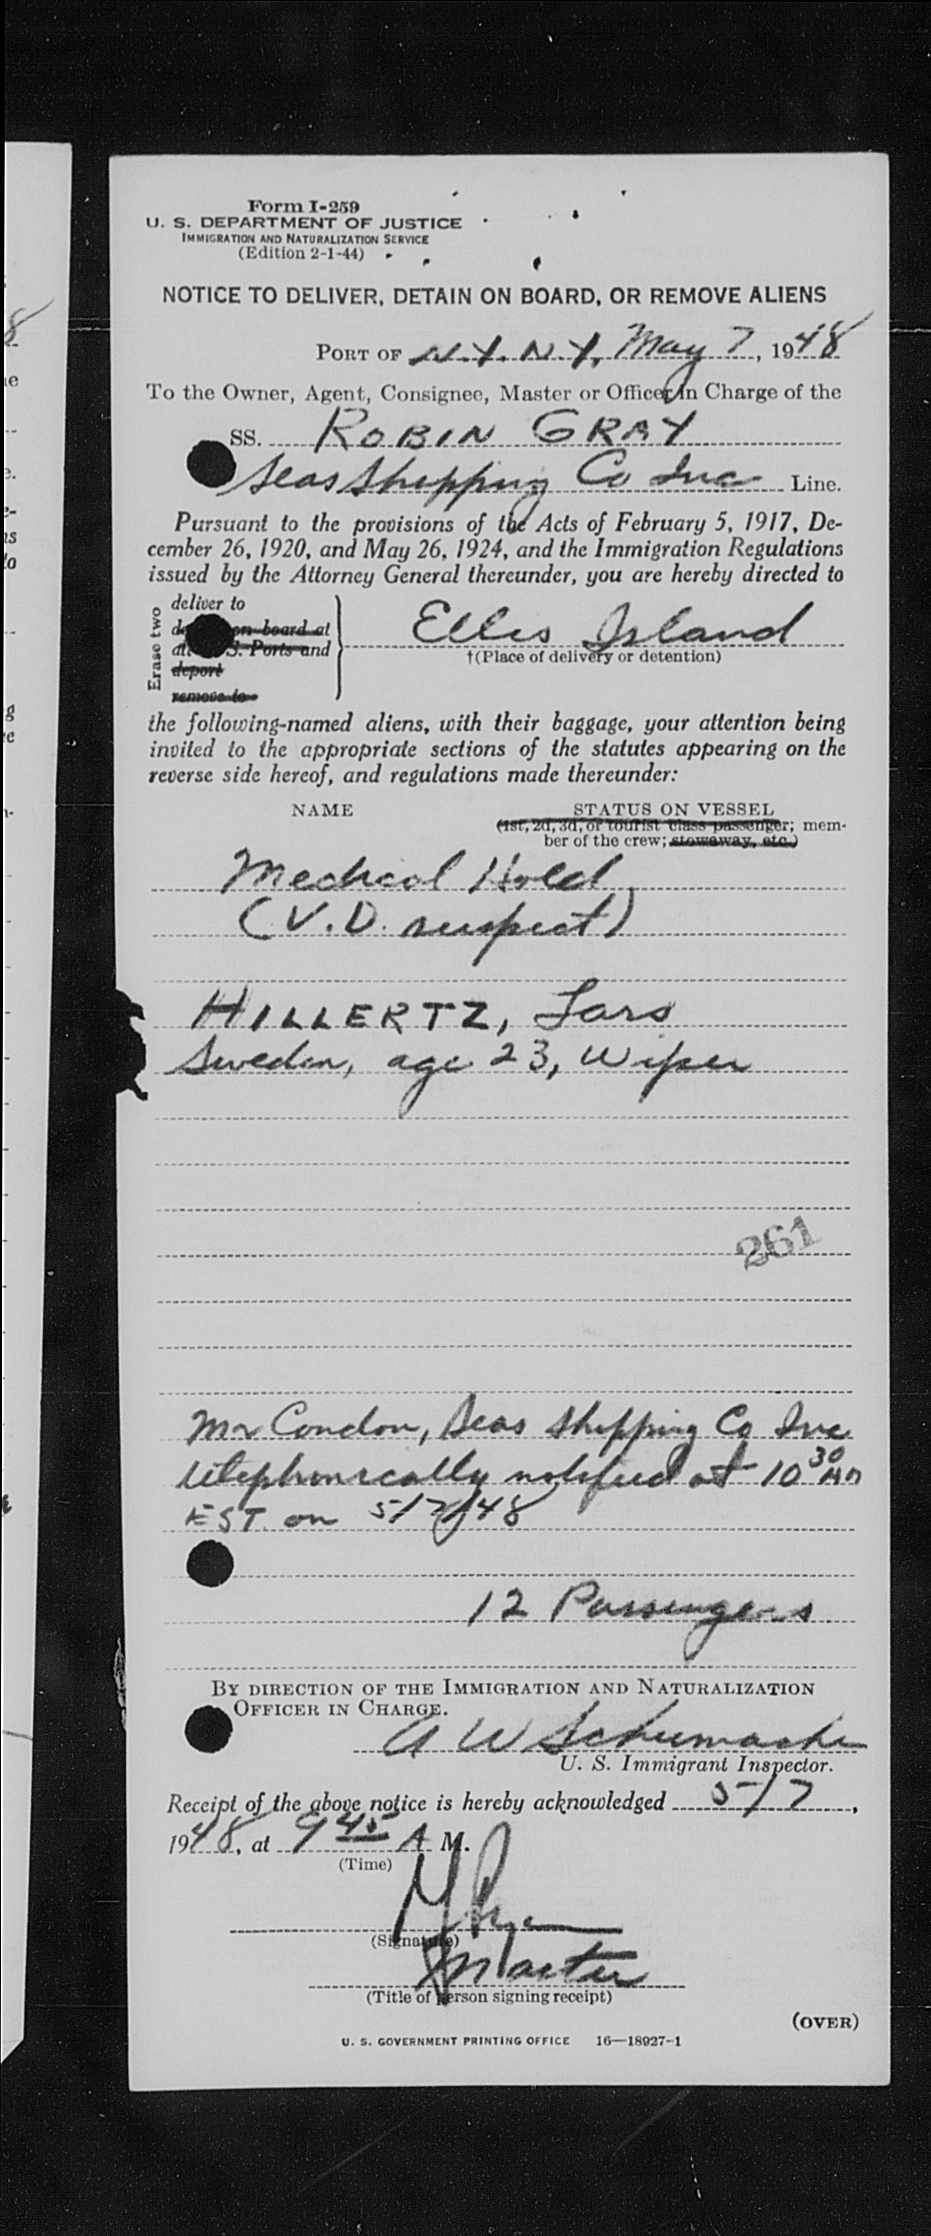 Form I-259
U. S. DEPARTMENT OF JUSTICE
IMMIGRATION AND NATURALIZATION SERVICE
(Edition 2-1-44)
NOTICE TO DELIVER, DETAIN ON BOARD, OR REMOVE ALIENS
PORT OF N.Y. N.Y., May 7, 1948
To the Owner, Agent, Consignee, Master or Officer in Charge of the
SS. ROBIN GRAY
Seas Shipping Co Inc Line.
Pursuant to the provisions of the Acts of February 5, 1917, De-
cember 26, 1920, and May 26, 1924, and the Immigration Regulations
issued by the Attorney General thereunder, you are hereby directed to
Erase two
deliver to
on board at
S. Ports and
deport
remove to
Ellis Island
†(Place of delivery or detention)
the following-named aliens, with their baggage, your attention being
invited to the appropriate sections of the statutes appearing on the
reverse side hereof, and regulations made thereunder:
NAME STATUS ON VESSEL
(1st, 2d, 3d, or tourist class passenger; mem-
ber of the crew; stowaway, etc.)
Medical Hold
(V.D. suspect)
HILLERTZ, Lars
Sweden, age 23, Wiper
261
Mr Condon, Seas Shipping Co Inc
telephonically notified at 10 30 AM
EST. on 5/7/48
12 Passengers
BY DIRECTION OF THE IMMIGRATION AND NATURALIZATION
OFFICER IN CHARGE.
A W Schumacher
U. S. Immigrant Inspector.
Receipt of the above notice is hereby acknowledged 5/7,
1948, at 9 45 A M.
(Time)
(Signature)
Master
(Title of person signing receipt)
(OVER)
U. S. GOVERNMENT PRINTING OFFICE 16—18927-1